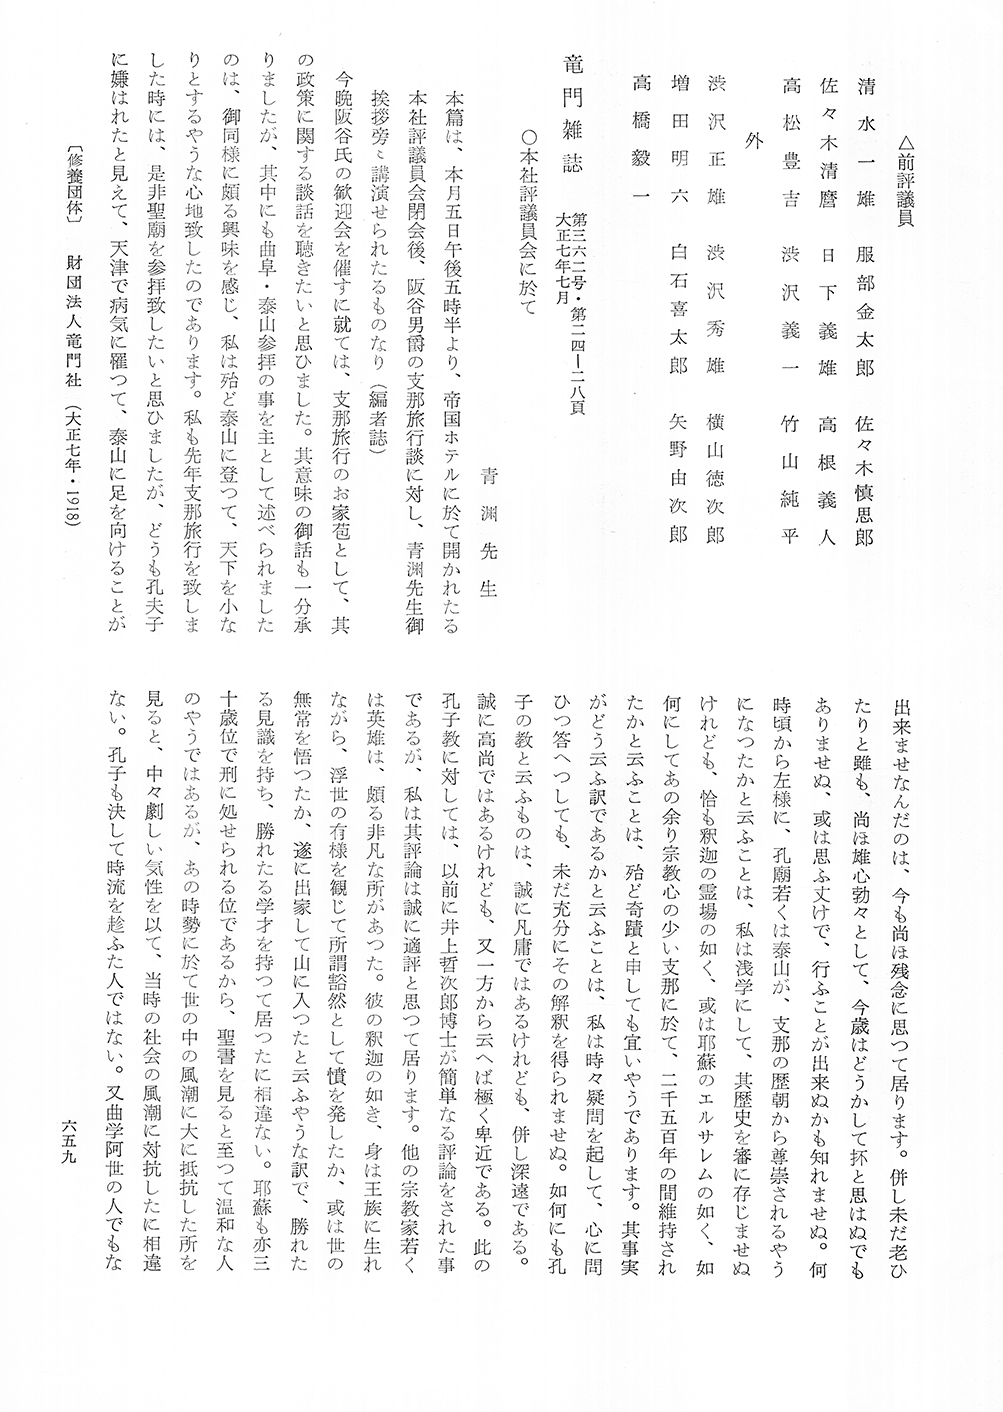 △前評議員
清水一雄　服部金太郎　佐々木慎思郎
佐々木清麿　日下義雄　高根義人
高松豊吉　渋沢義一　竹山純平
外
渋沢正雄　渋沢秀雄　横山徳次郎
増田明六　白石喜太郎　矢野由次郎
高橋毅一
竜門雑誌　第三六二号・第二四―二八頁
大正七年七月
〇本社評議員会に於て
青淵先生
本篇は、本月五日午後五時半より、帝国ホテルに於て開かれたる
本社評議員会閉会後、阪谷男爵の支那旅行談に対し、青淵先生御
挨拶旁〻講演せられたるものなり（編者誌）
今晩阪谷氏の歓迎会を催すに就ては、支那旅行のお家苞として、其
の政策に関する談話を聴きたいと思ひました。其意味の御話も一分承
りましたが、其中にも曲阜・泰山参拝の事を主として述べられました
のは、御同様に頗る興味を感じ、私は殆ど泰山に登つて、天下を小な
りとするやうな心地致したのであります。私も先年支那旅行を致しま
した時には、是非聖廟を参拝致したいと思ひましたが、どうも孔夫子
に嫌はれたと見えて、天津で病気に罹つて、泰山に足を向けることが
出来ませなんだのは、今も尚ほ残念に思つて居ります。併し未だ老ひ
たりと雖も、尚ほ雄心勃々として、今歳はどうかして抔と思はぬでも
ありませぬ、或は思ふ丈けで、行ふことが出来ぬかも知れませぬ。何
時頃から左様に、孔廟若くは泰山が、支那の歴朝から尊崇されるやう
になつたかと云ふことは、私は浅学にして、其歴史を審に存じませぬ
けれども、恰も釈迦の霊場の如く、或は耶蘇のエルサレムの如く、如
何にしてあの余り宗教心の少い支那に於て、二千五百年の間維持され
たかと云ふことは、殆ど奇蹟と申しても宜いやうであります。其事実
がどう云ふ訳であるかと云ふことは、私は時々疑問を起して、心に問
ひつ答へつしても、未だ充分にその解釈を得られませぬ。如何にも孔
子の教と云ふものは、誠に凡庸ではあるけれども、併し深遠である。
誠に高尚ではあるけれども、又一方から云へば極く卑近である。此の
孔子教に対しては、以前に井上哲次郎博士が簡単なる評論をされた事
であるが、私は其評論は誠に適評と思つて居ります。他の宗教家若く
は英雄は、頗る非凡な所があつた。彼の釈迦の如き、身は王族に生れ
ながら、浮世の有様を観じて所謂豁然として憤を発したか、或は世の
無常を悟つたか、遂に出家して山に入つたと云ふやうな訳で、勝れた
る見識を持ち、勝れたる学才を持つて居つたに相違ない。耶蘇も亦三
十歳位で刑に処せられる位であるから、聖書を見ると至つて温和な人
のやうではあるが、あの時勢に於て世の中の風潮に大に抵抗した所を
見ると、中々劇しい気性を以て、当時の社会の風潮に対抗したに相違
ない。孔子も決して時流を趁ふた人ではない。又曲学阿世の人でもな
〔修養団体〕　財団法人竜門社（大正七年・1918）
六五九